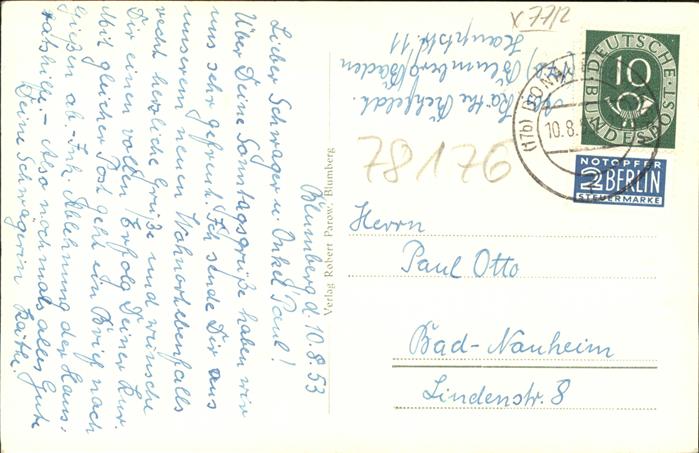 Blumberg d. 10.8.53
Lieber Schwager u. Onkel Paul!
Über Deine Sonntagsgrüße haben wir
uns sehr gefreut. Ich sende Dir aus
unserem neuen Wohnort ebenfalls
recht herzliche Grüße und wünsche
Dir einen vollen Erfolg Deiner Kur.
Mit gleicher Post geht ein Brief nach
Gießen ab. Ablehnung der Haus-
ratshilfe. – Also nochmals alles Gute
Deine Schwägerin Käthe.
Verlag Robert Parow, Blumberg
Käthe
Blumberg/Baden
Hauptstr. 11
X 77/2
78176
DEUTSCHE BUNDESPOST
10
(17b)
10.8.
NOTOPFER
2 BERLIN
STEUERMARKE
Herrn
Paul Otto
Bad-Nauheim
Lindenstr. 8